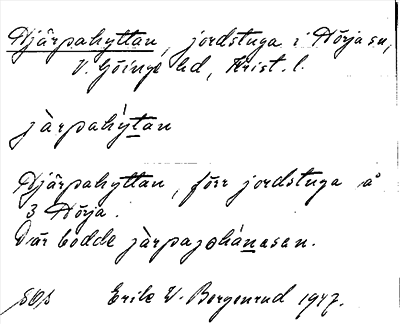 Hjärpahyttan, jordstuga i Hörja sn,
V. Göinge hd, Krist. l.
jàrpahýtan
Hjärpahyttan, förr jordstuga å
3 Hörja.
Där bodde jàrpajohánəsen.
Erik W. Bergenrud 1947.